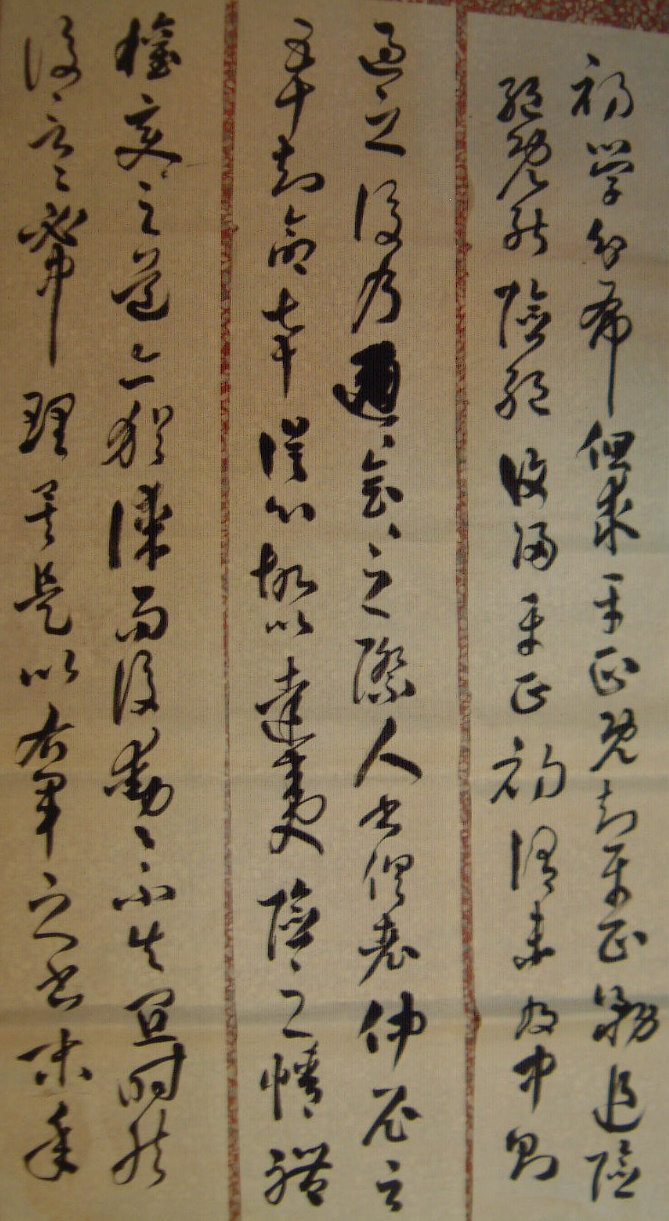 初學分布但求平正既知平正務追險
絕既能險絕復歸平正初謂未及中則
過之後乃通〻會〻之際人書俱老仲尼云
五十知命七十從心故以達夷險之情體
權變之道亦猶謀而後動〻不失宜時然
後言〻必中理矣是以右軍之書末年